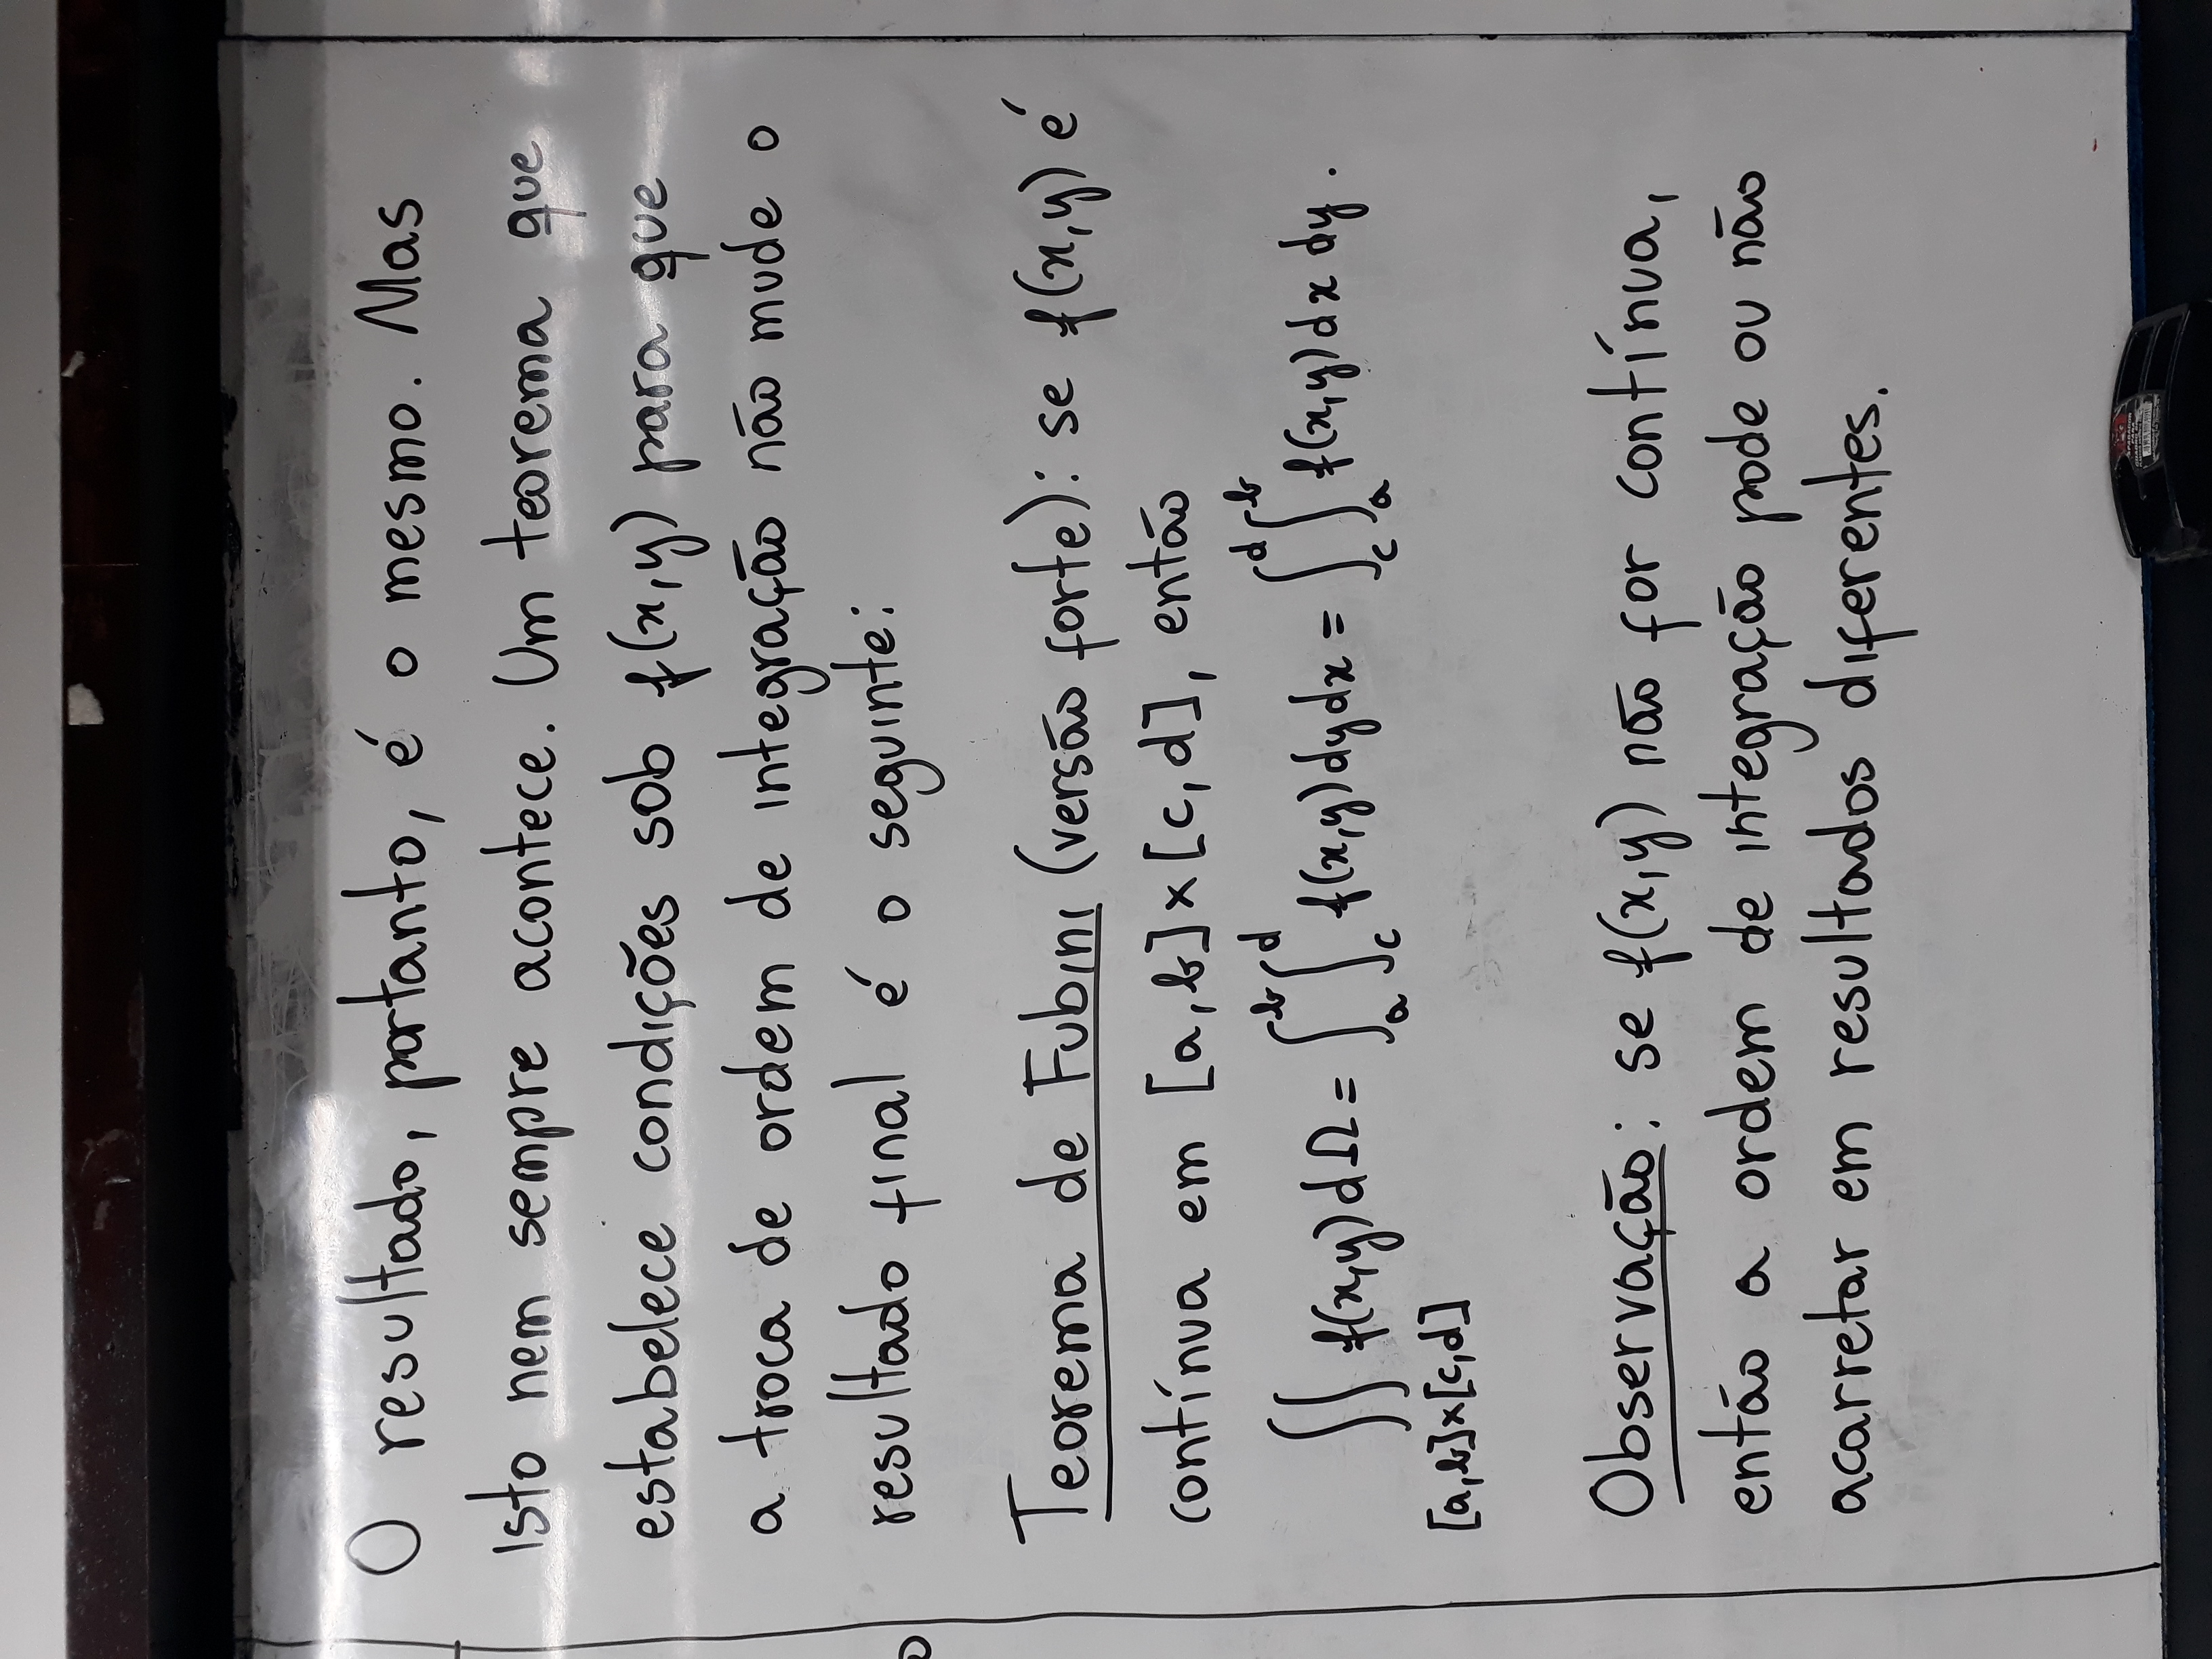 O resultado, portanto, é o mesmo. Mas
isto nem sempre acontece. Um teorema que
estabelece condições sob f(x,y) para que
a troca de ordem de integração não mude o
resultado final é o seguinte:
Teorema de Fubini (versão forte): se f(x,y) é
contínua em [a,b]×[c,d], então
∬ f(x,y)dΩ = ∫_a^b ∫_c^d f(x,y)dydx = ∫_c^d ∫_a^b f(x,y)dx dy.
[a,b]×[c,d]
Observação: se f(x,y) não for contínua,
então a ordem de integração pode ou não
acarretar em resultados diferentes.
APAGADOR
PARA